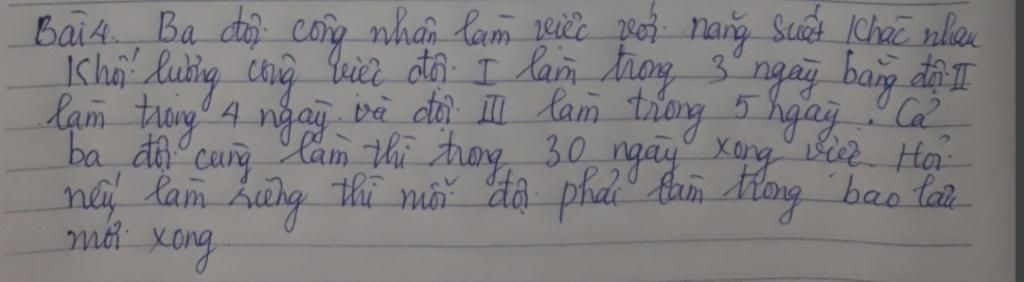 Bài 4. Ba đội công nhân làm việc với năng suất khác nhau
Khối lượng công việc đội I làm trong 3 ngày bằng đội II
làm trong 4 ngày và đội III làm trong 5 ngày. Cả
ba đội cùng làm thì trong 30 ngày xong việc. Hỏi
nếu làm riêng thì mỗi đội phải làm trong bao lâu
mới xong